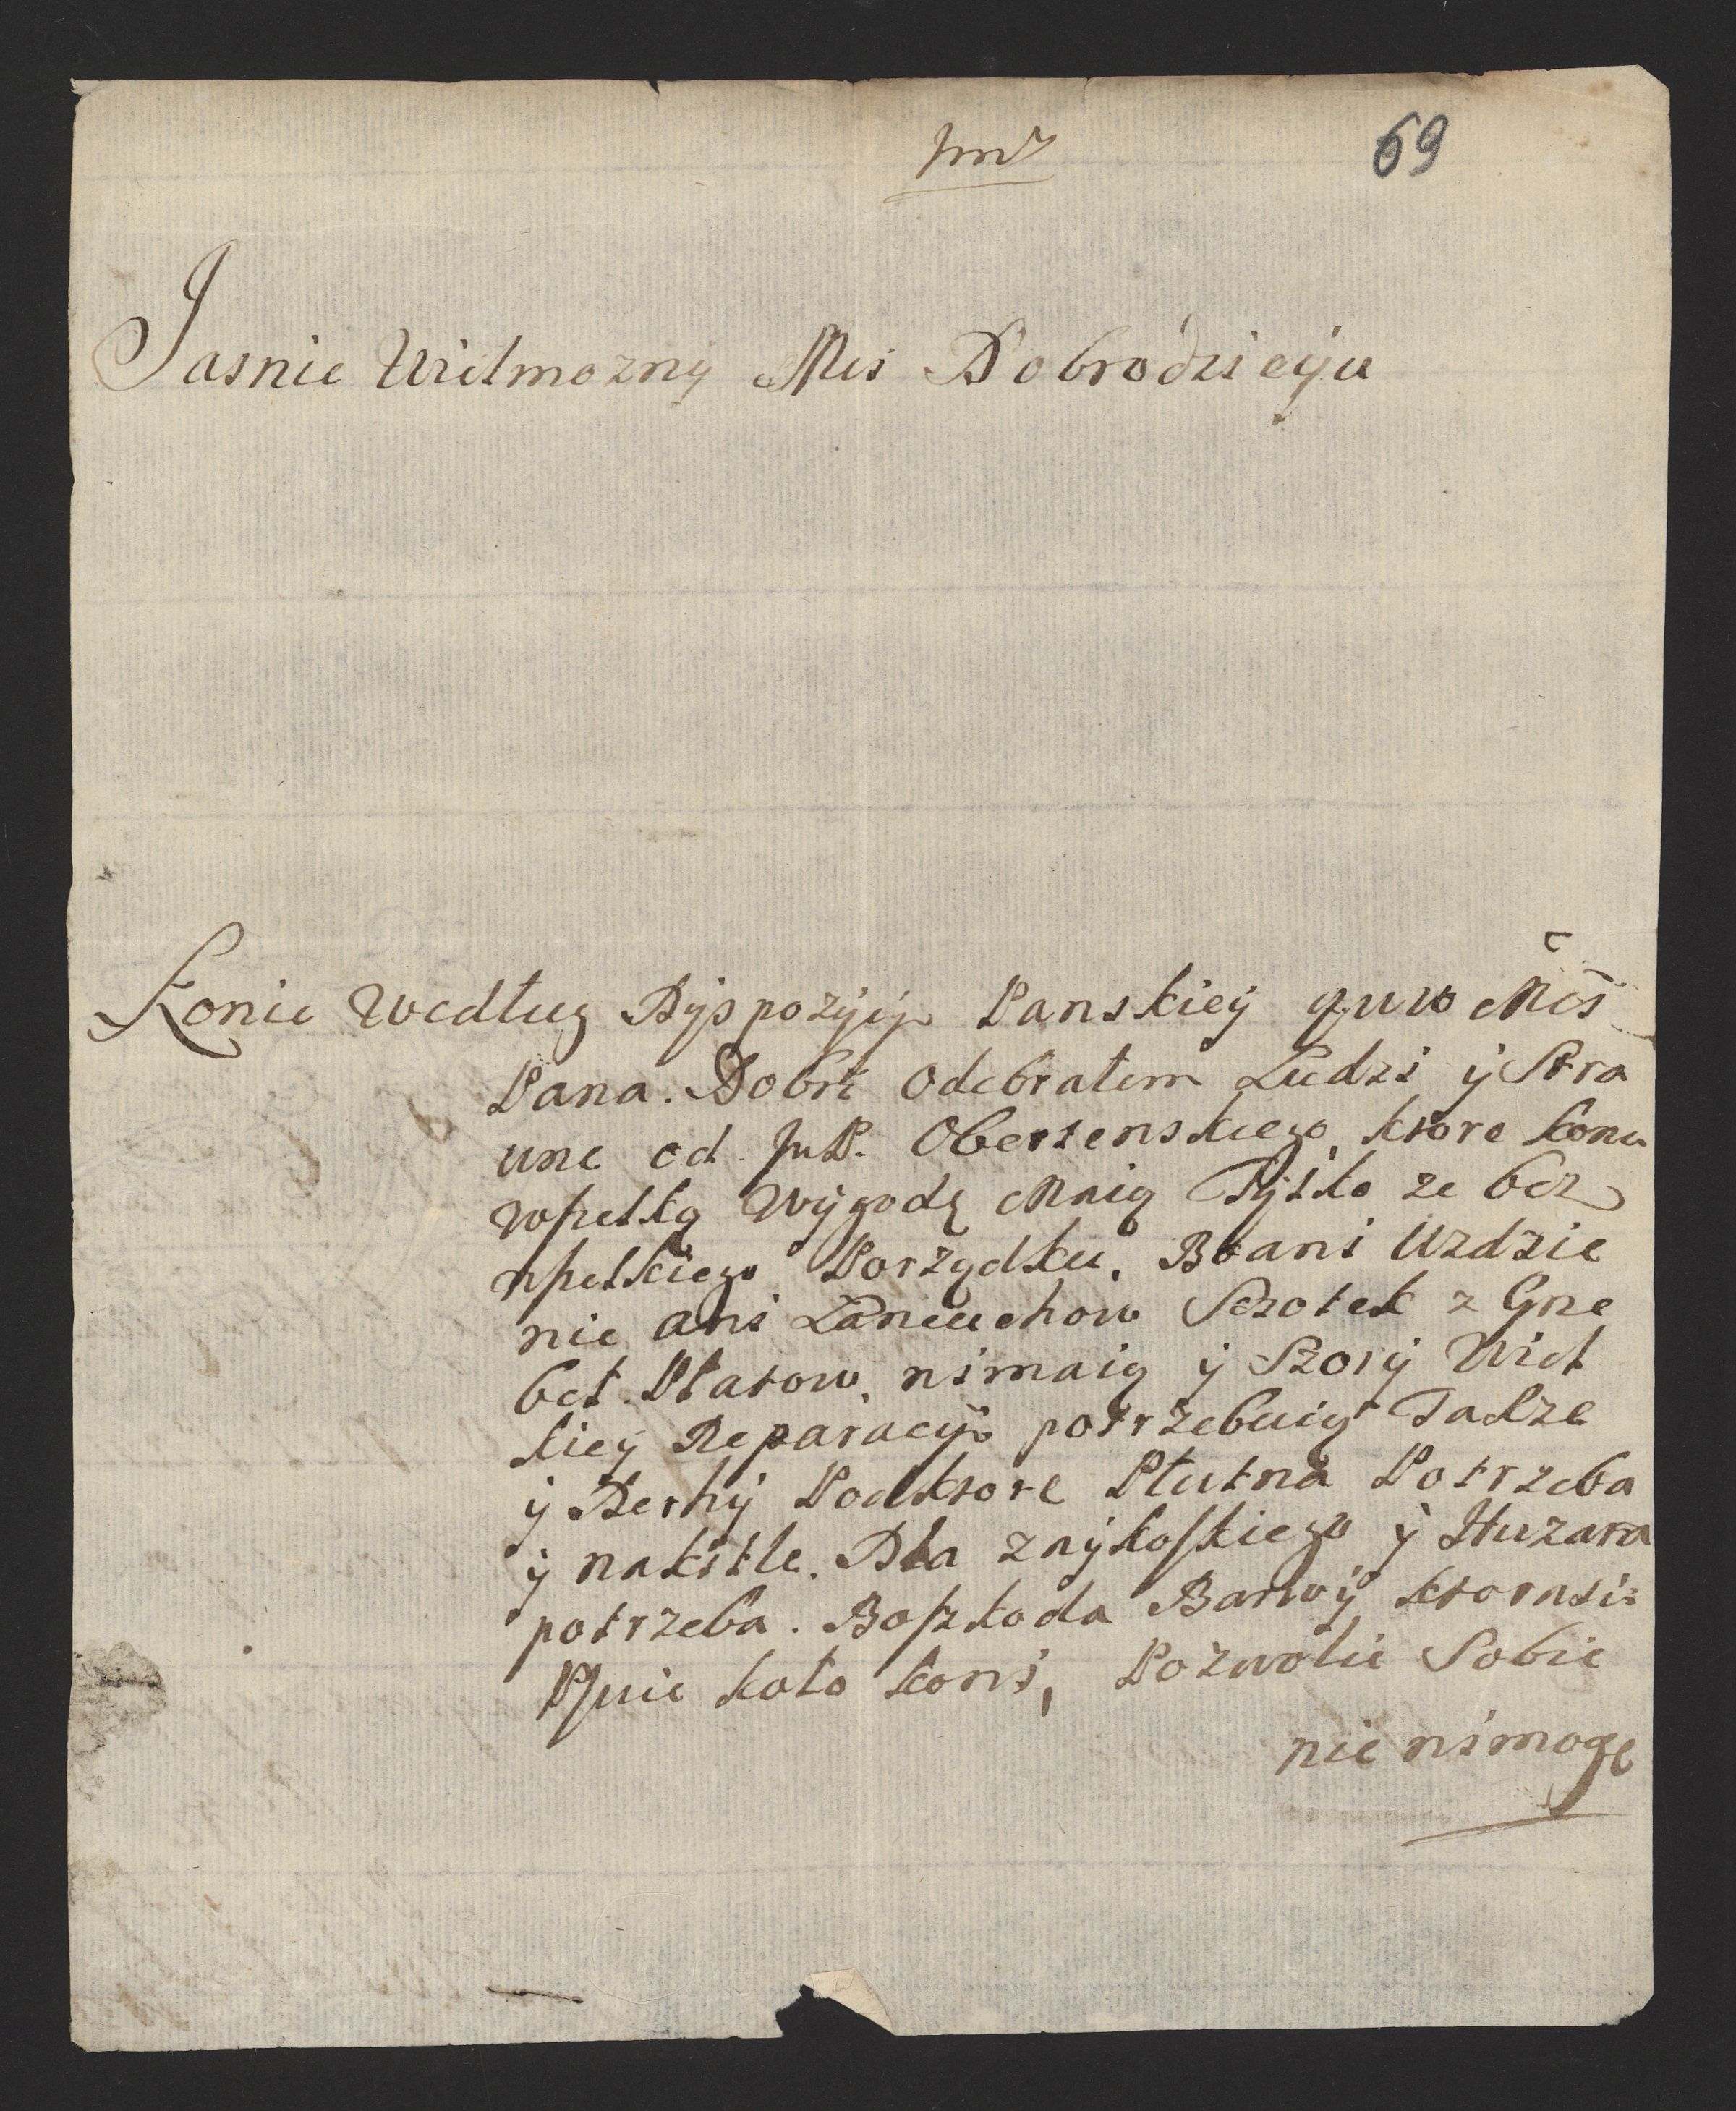 69
Jasnie Wielmozny Mći Dobrodzieyu
Konie Według Dyspozycyi Panskiey
Pana. Dobrz Odebrałem Ludzi y Stra
une od JmP. Oberzenskiego, ktore konie
wszelką Wygodę Maią Tylko ze bez
wszelkiego Porządku, Bo ani Uzdzie
nic ani Łancuchow Sczotek z Grze
beł. Płatow, nimaią y Szory Wiel
kiey Reparacyi potrzebuią Takze
y Derhy Podktore Płutna Potrzeba
y nakitle. Dla y Huzara
potrzeba. Boszkoda Barwy
koło koni, Pozwolic Sobie
nic nimogę